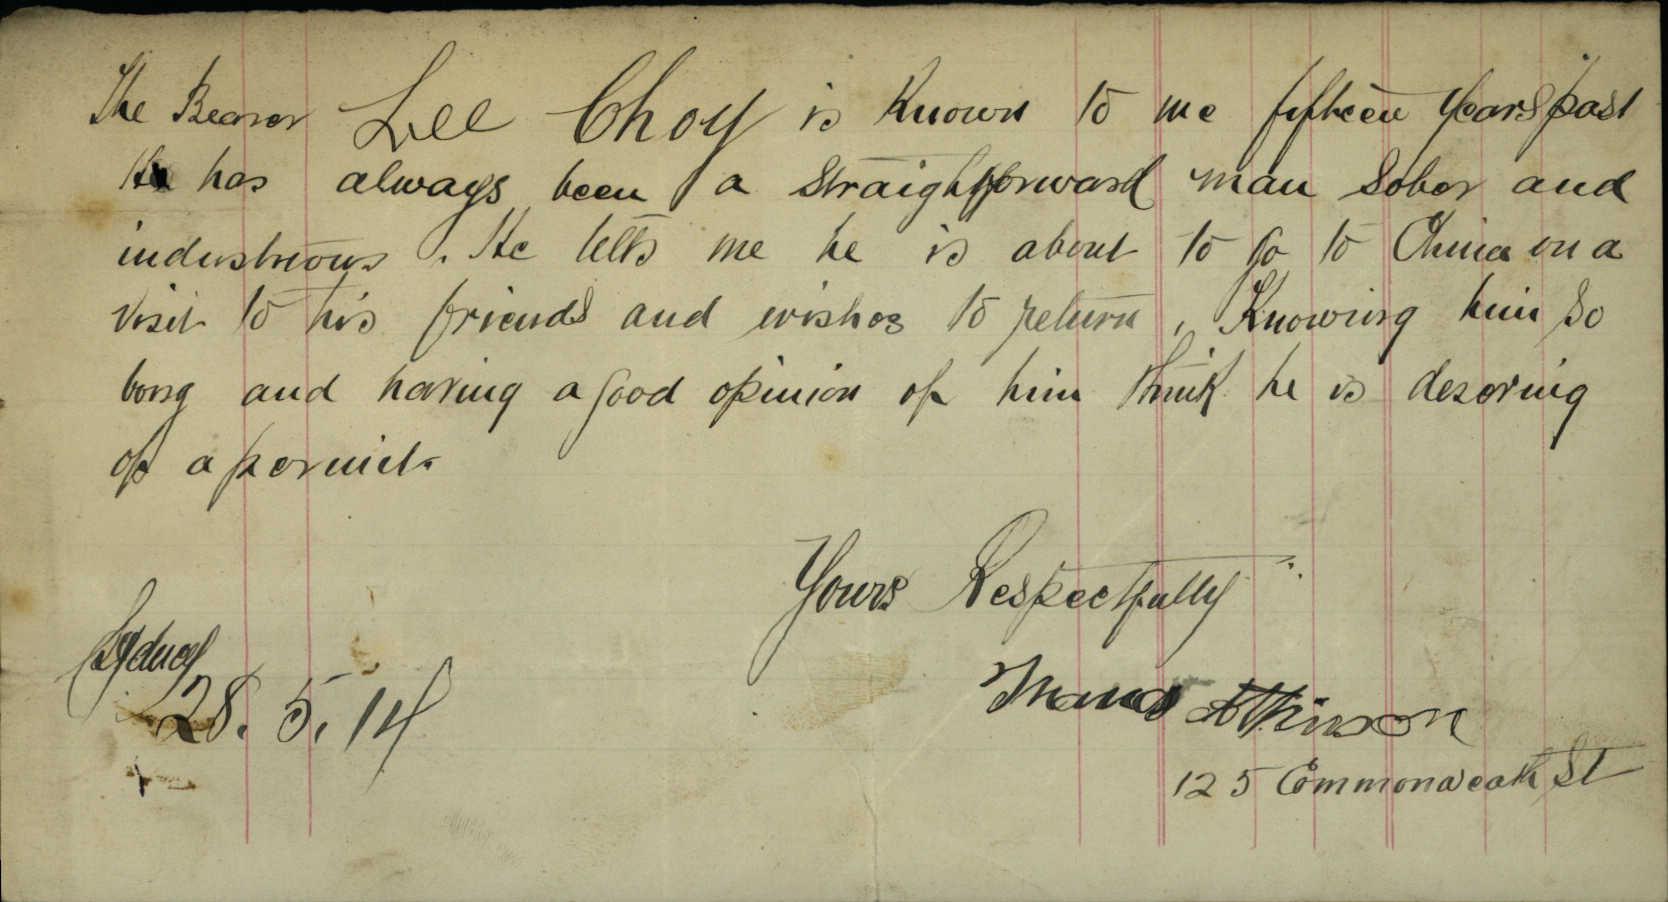 The Bearer Lee Choy is Known to me fifteen years past
He has always been a straightforward man Sober and
industrious. He tells me he is about to Go to China on a
visit to his friends and wishes to return, Knowing him so
long and having a good opinion of him think he is deserving
of a permit.
Yours Respectfully
Sydney
28.5.14
Maud Atkinson
125 Commonweath St